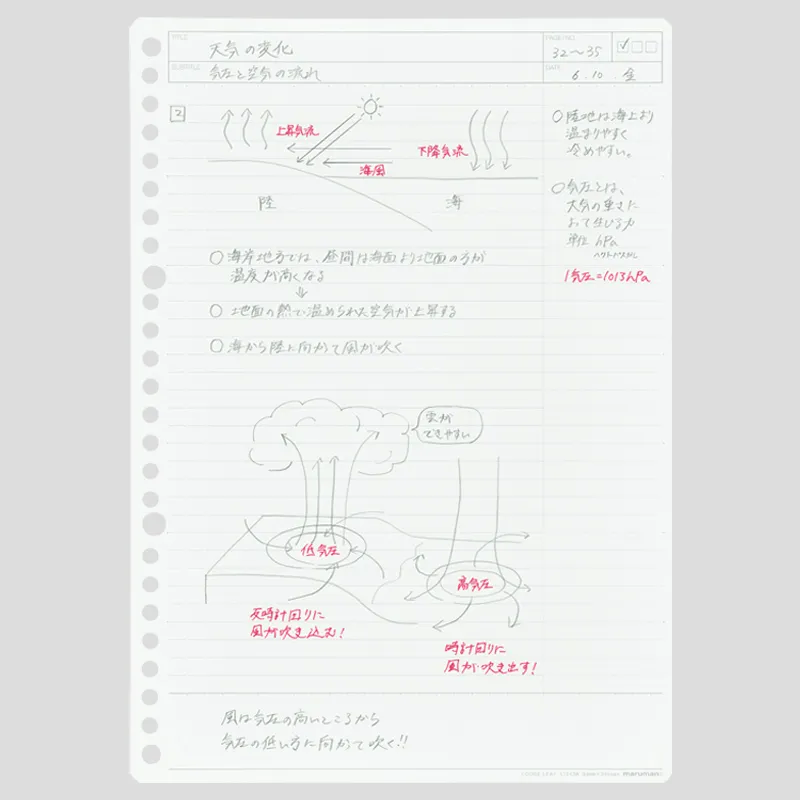 TITLE
天気の変化
PAGE/NO.
32〜35
SUBTITLE
気圧と空気の流れ
DATE
6.10.金
2
上昇気流
下降気流
海風
陸
海
○海岸地方では、昼間は海面より地面の方が
温度が高くなる
○地面の熱で温められた空気が上昇する
○海から陸に向かって風が吹く
○陸地は海上より
温まりやすく
冷めやすい。
○気圧とは、
大気の重さに
よって生じる力
単位 hPa
ヘクトパスカル
1気圧=1013hPa
雲が
できやすい
低気圧
高気圧
反時計回りに
風が吹き込む!
時計回りに
風が吹き出す!
風は気圧の高いところから
気圧の低い方に向かって吹く!!
maruman